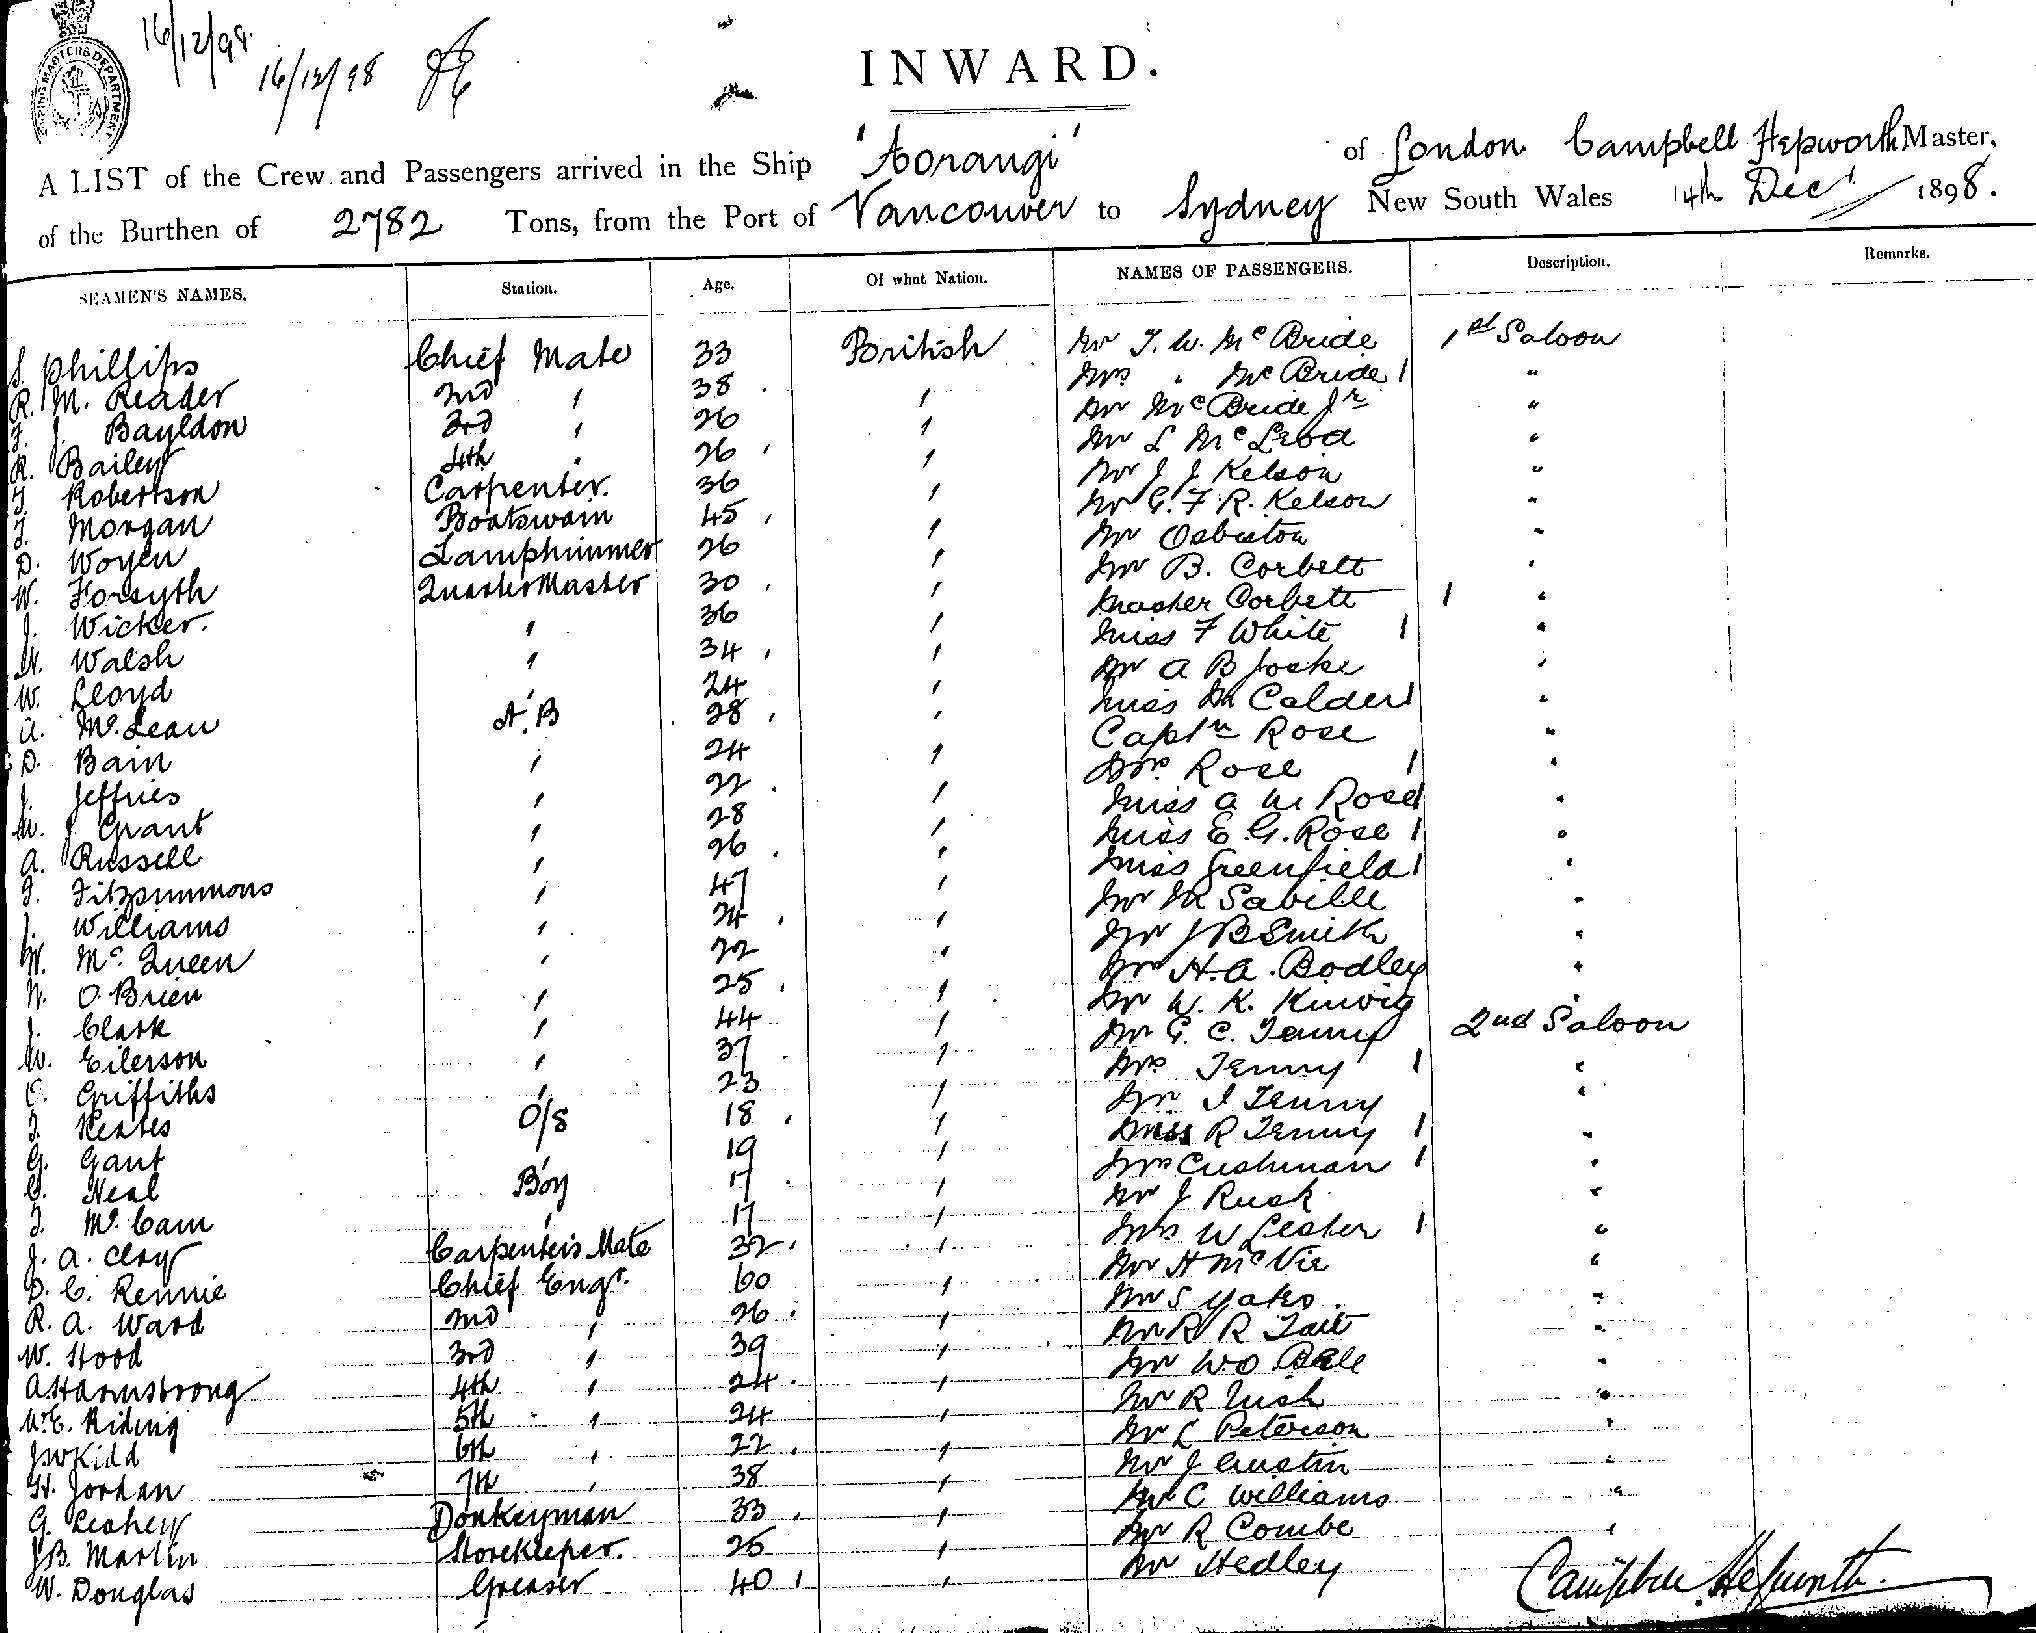 16/12/98
16/12/98
INWARD.
A LIST of the Crew and Passengers arrived in the Ship 'Aorangi' of London Campbell Hepworth Master,
of the Burthen of 2782 Tons, from the Port of Vancouver to Sydney New South Wales 14th Dec 1898.
SEAMEN'S NAMES. Station. Age. Of what Nation. NAMES OF PASSENGERS. Description. Remarks.
S. Phillips Chief Mate 33 British Mr T. W. McBride 1st Saloon
R. M. Reader 2nd " 38 " Mrs " McBride 1 "
F. J. Bayldon 3rd " 26 " Mr McBride Jr "
R. Bailey 4th " 26 " Mr L McLeod "
T. Robertson Carpenter. 36 " Mr J J Kelson "
T. Morgan Boatswain 45 " Mr G. F. R. Kelson "
D. Woyen Lamptrimmer 26 " Mr Osbiston "
W. Forsyth QuarterMaster 30 " Mr B. Corbett "
J. Wicker. " 36 " Master Corbett 1 "
W. Walsh " 34 " Miss F White 1 "
W. Lloyd " 24 " Mr A B Joske "
A. McLean A.B 28 " Miss M Calder 1 "
D. Bain " 24 " Captn Rose "
J. Jeffries " 22 " Mrs Rose 1 "
M. J Grant " 28 " Miss A M Rose 1 "
A. Russell " 26 " Miss E. G. Rose 1 "
F. Fitzsimmons " 47 " Miss Greenfield 1 "
J. Williams " 24 " Mr M Saville "
W. McQueen " 22 " Mr J B Smith "
W. O'Brien " 25 " Mr H. A. Bodley "
J. Clark " 44 " Mr W. K. "
W. Eilerson " 37 " Mr G. C. Tenny 2nd Saloon
C. Griffiths " 23 " Mrs Tenny 1 "
T. Keates O/S 18 " Mr I Tenny "
G. Gant " 19 " Miss R Tenny 1 "
G. Neal Boy 17 " Mrs Cushman 1 "
T. McCam " 17 " Mr J Rusk "
J. A. Clay Carpenter's Mate 32 " Mrs W Lester 1 "
D. C. Rennie Chief Engr. 60 " Mr H McVie "
R. A. Ward 2nd " 26 " Mr S "
W. Hood 3rd " 39 " Mr R R Tait "
A Harmstrong 4th " 24 " Mr W O Bale "
W. E. Riding 5th " 24 " Mr R "
J W Kidd 6th " 22 " Mr L Peterson "
H. Jordan 7th " 38 " Mr J Austin "
G. Leahey Donkeyman 33 " Mr C Williams "
J. B. Martin Storekeeper. 25 " Mr R Combe "
W. Douglas Greaser 40 " Mr Hedley
Campbell Hepworth.